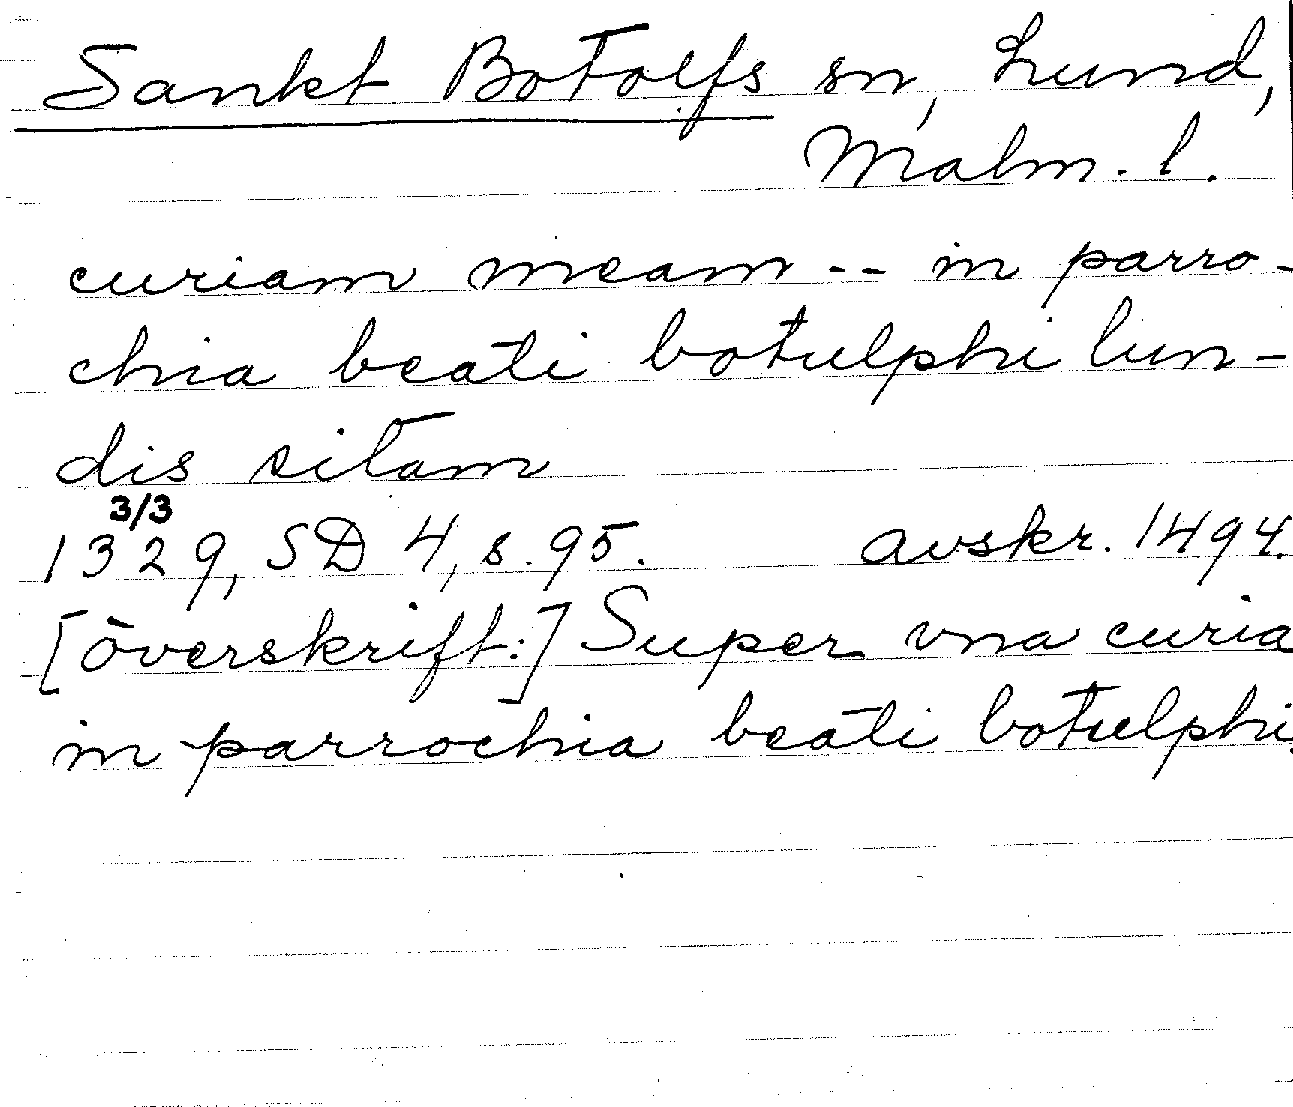 Sankt Botolfs sn, Lund,
Malm. l.
curiam meam -- in parro-
chia beati botulphi lun-
dis sitam
3/3
1329, SD 4, s. 95. avskr. 1494.
[överskrift:] Super vna curia
in parrochia beati botulphi.